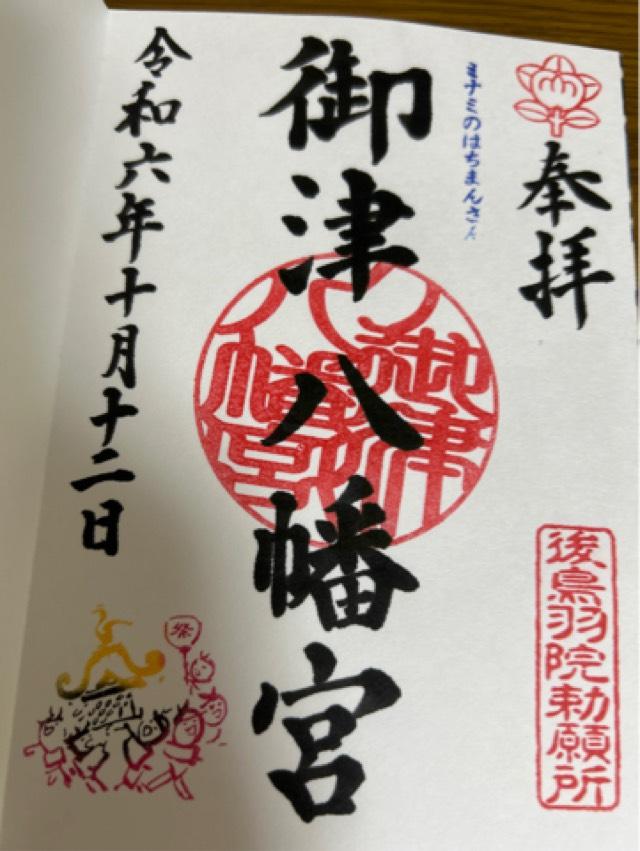 奉拝
後鳥羽院勅願所
ミナミのはちまんさん
御津八幡宮
御津八幡宮
令和六年十月十二日
祭